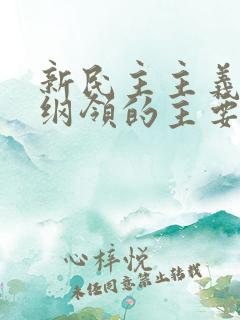 新民主主義
纲領的主要
心梓悦
未经同意禁止转载